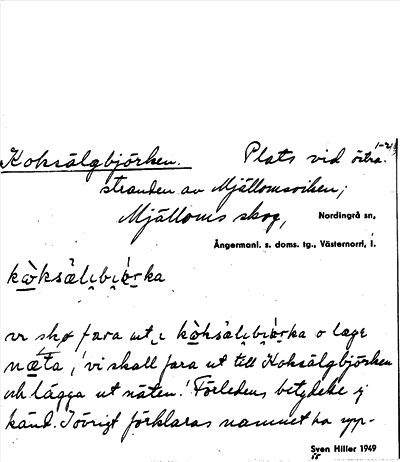 Koksälgbjörken. Plats vid östra
stranden av Mjällomsviken;
Mjälloms skog, Nordingrå sn,
Ångermanl. s. doms. tg., Västernorrl. l.
kòksàlibiòrka
vi skò fara ut i kòksàlibiòrka o läge
næta, 'vi skall fara ut till Koksälgbjörken
och lägga ut näten.' Förledens betydelse ej
känd. I övrigt förklaras namnet ha upp-
Sven Hiller 1949